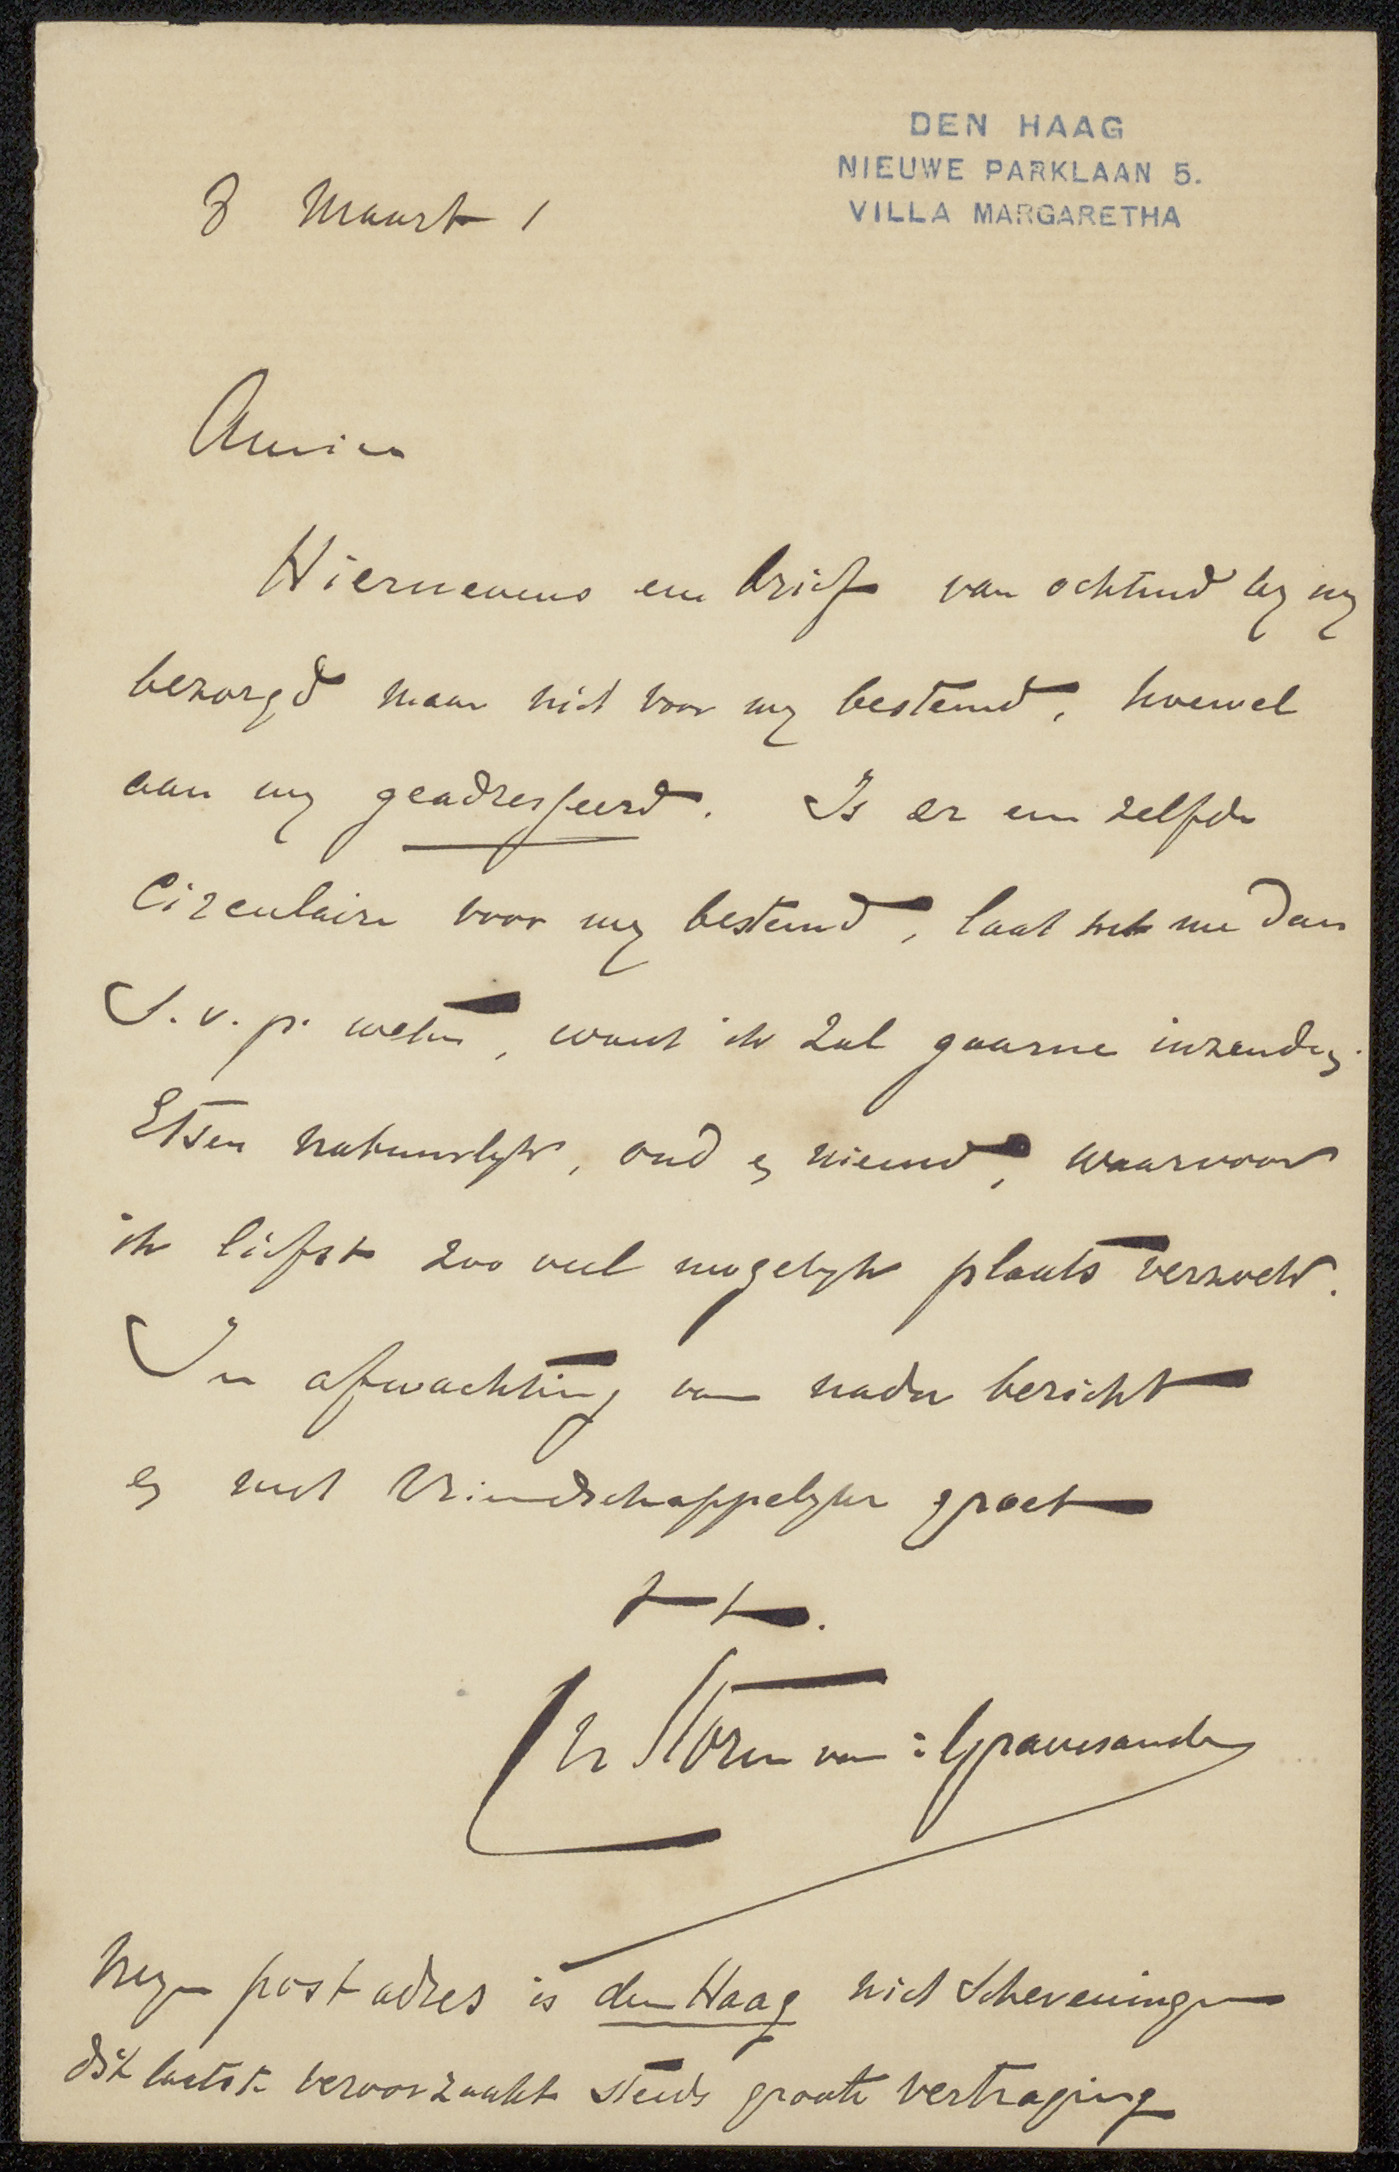 DEN HAAG
NIEUWE PARKLAAN 5.
VILLA MARGARETHA
3 Maart 1
Amice
Hiernevens een brief van ochtend by my
bezorgd maar niet voor my bestemd, hoewel
aan my geadresseerd. Is er een zelfde
Circulaire voor my bestemd, laat het me dan
S.v.p. weten, want ik zal gaarne inzenden.
Etsen natuurlyk, oud en nieuw, waarvoor
ik liefst zoo veel mogelyk plaats verzoek.
In afwachting van nader bericht
en met vriendschappelyke groet
t t.
Ch Storm van 's Gravesande
Myn post adres is den Haag niet Scheveningen
dit laatste veroorzaakt steeds groote vertraging